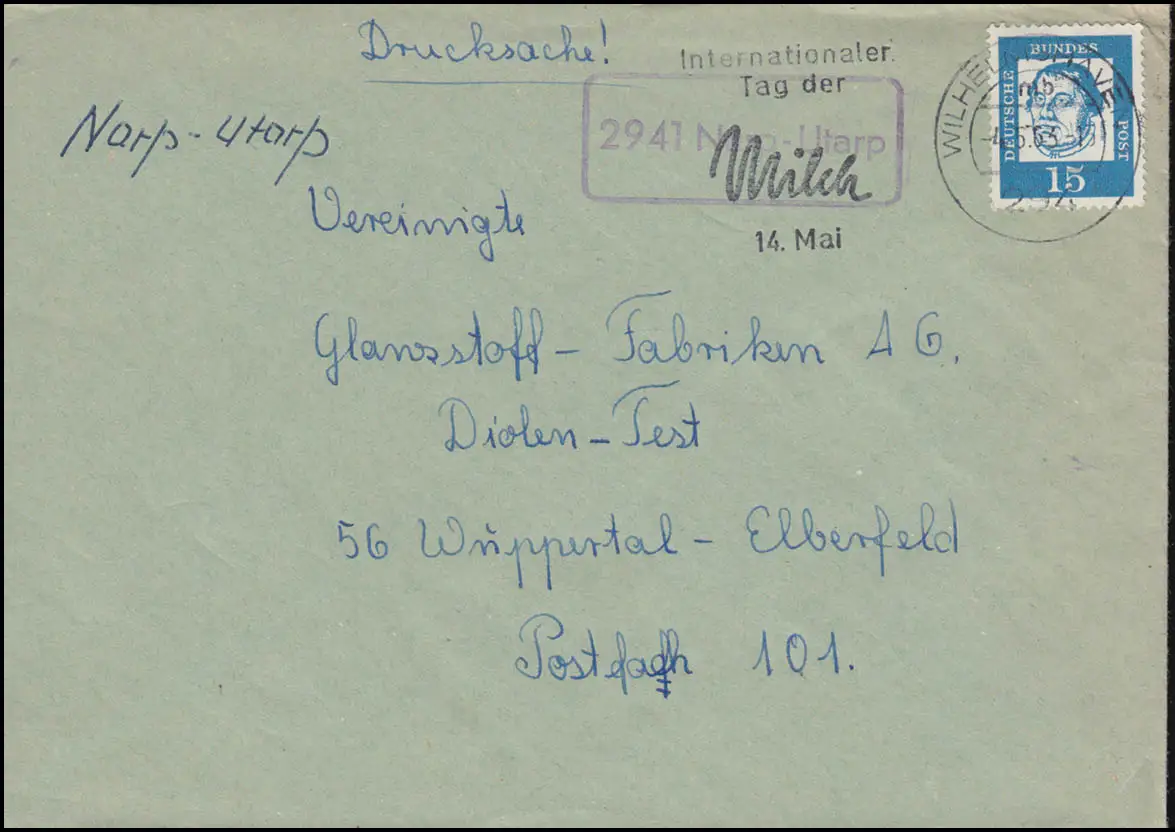 Drucksache!
Internationaler
Tag der
Milch
14. Mai
2941 Narp-Utarp
WILHELMSHAVEN
mb
-4.5.63-
294
DEUTSCHE BUNDES POST
15
Narp-Utarp
Vereinigte
Glanzstoff-Fabriken AG.
Diolen-Test
56 Wuppertal-Elberfeld
Postfach 101.